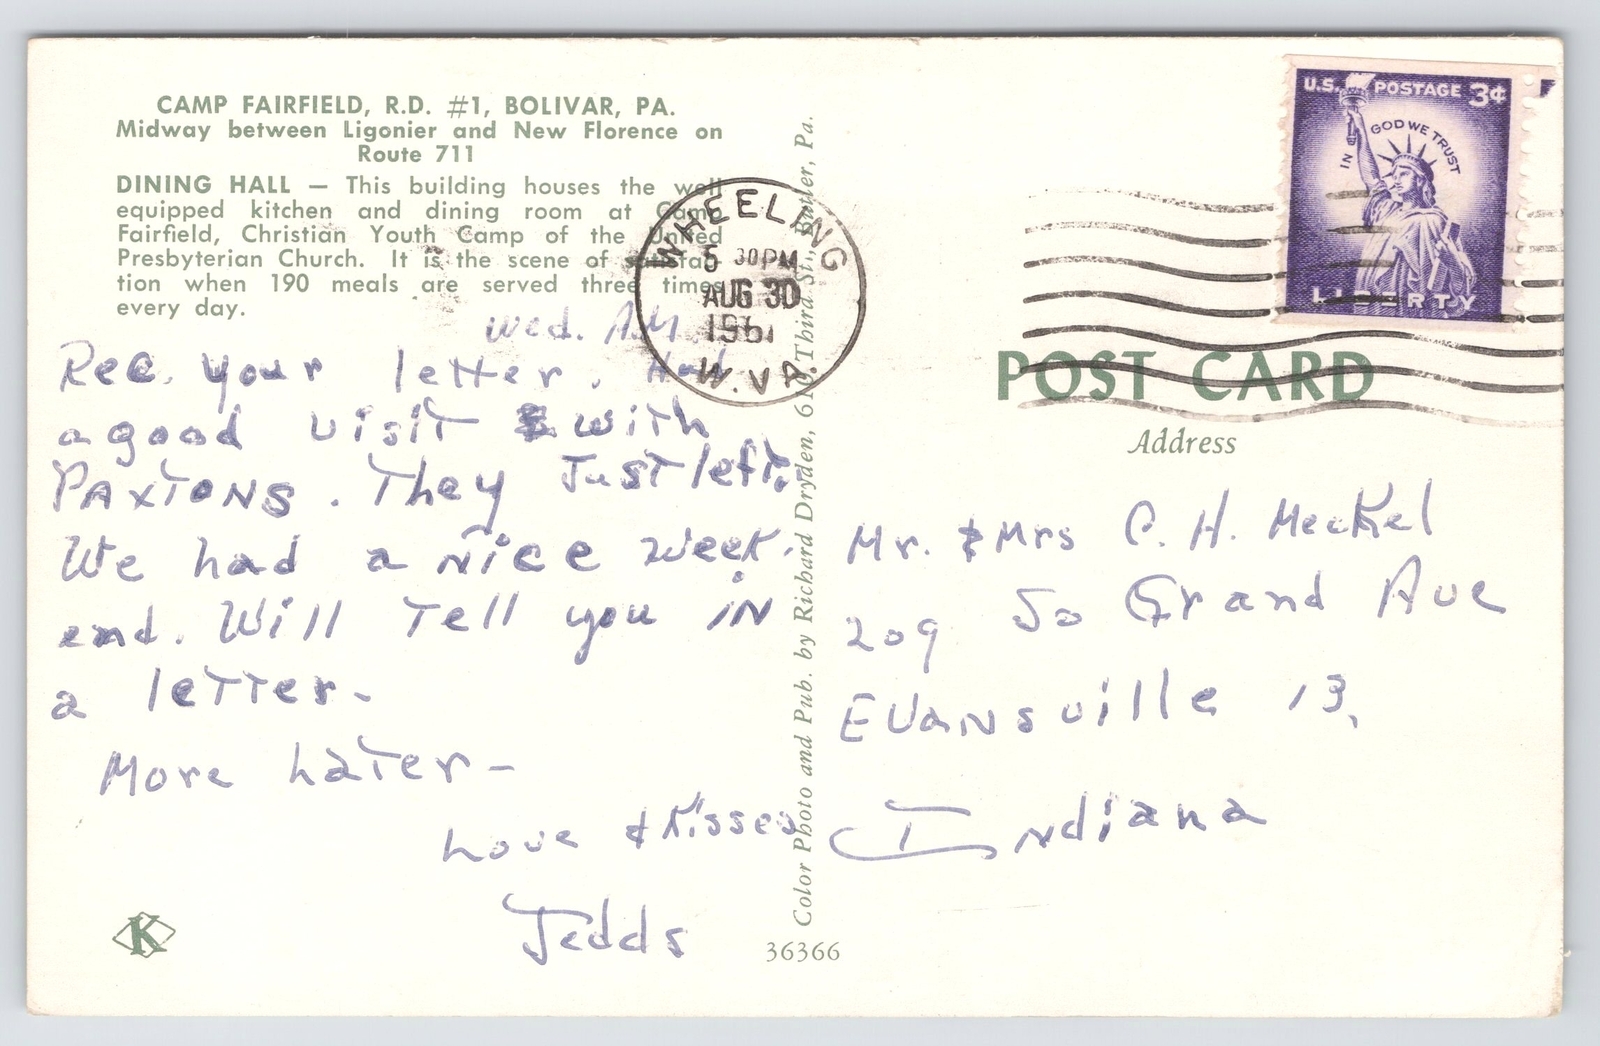 CAMP FAIRFIELD, R.D. #1, BOLIVAR, PA.
Midway between Ligonier and New Florence on
Route 711
DINING HALL — This building houses the well
equipped kitchen and dining room at Camp
Fairfield, Christian Youth Camp of the United
Presbyterian Church. It is the scene of satisfac-
tion when 190 meals are served three times
every day.
Wed. A.M.
Rec. your letter. Had
a good visit with
PAXTONS. They Just left.
We had a nice week-
end. Will Tell you IN
a letter-
More Later-
Love & Kisses
Jedds
K
36366
Color Photo and Pub. by Richard Dryden, 610 Third St., Butler, Pa.
WHEELING
5 30 PM
AUG 30
1961
W. VA.
U.S. POSTAGE 3¢
IN GOD WE TRUST
LIBERTY
POST CARD
Address
Mr. & Mrs C. H. Meckel
209 So Grand Ave
Evansville 13,
Indiana